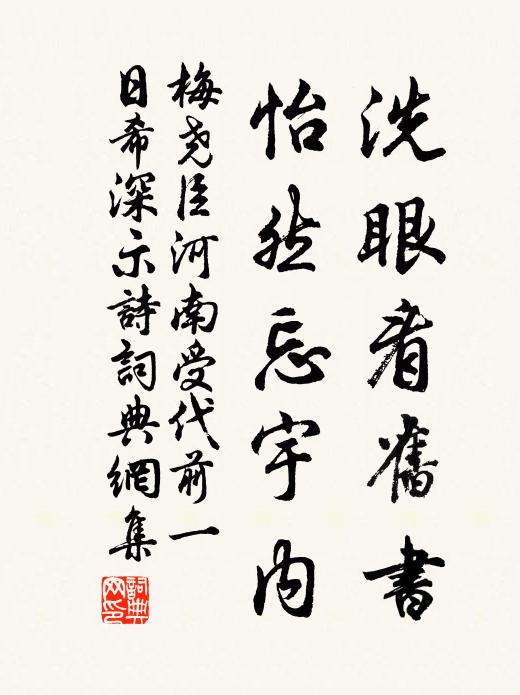 洗眼看舊書
怡然忘宇内
梅堯臣河南受代前一
日希深示詩詞典網集
詞典網印